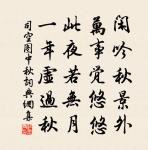 閑吟秋景外
萬事覺悠悠
此夜若無月
一年虛過秋
司空圖中秋詞典網集